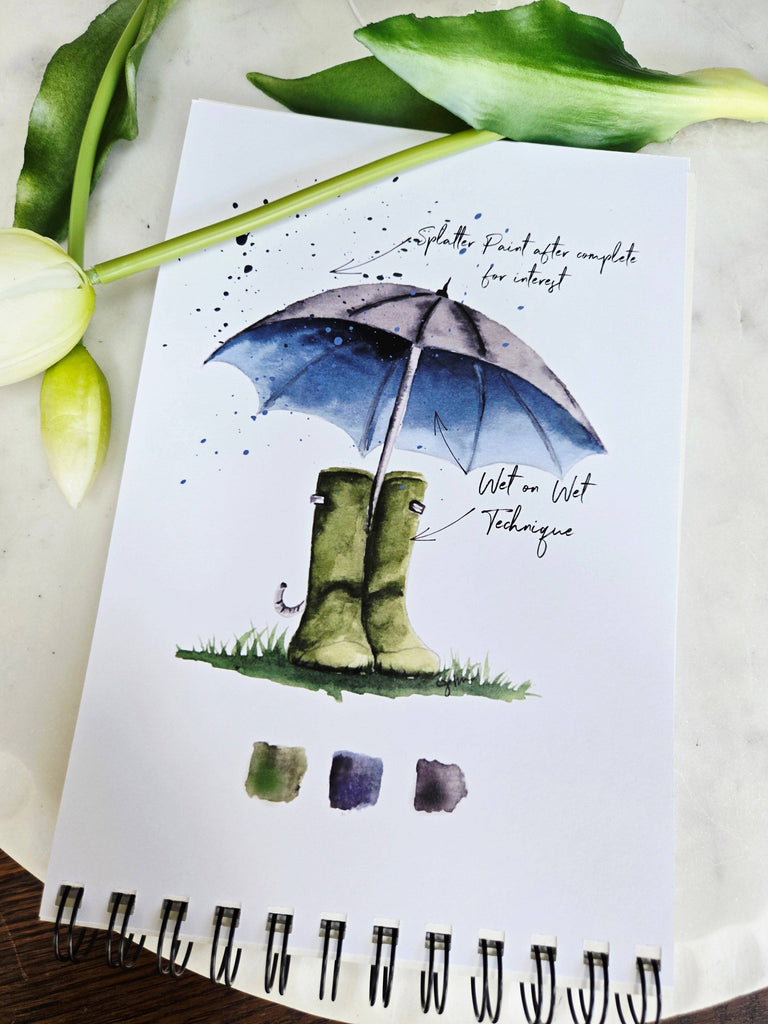 Splatter Paint after complete
for interest
Wet on Wet
Technique